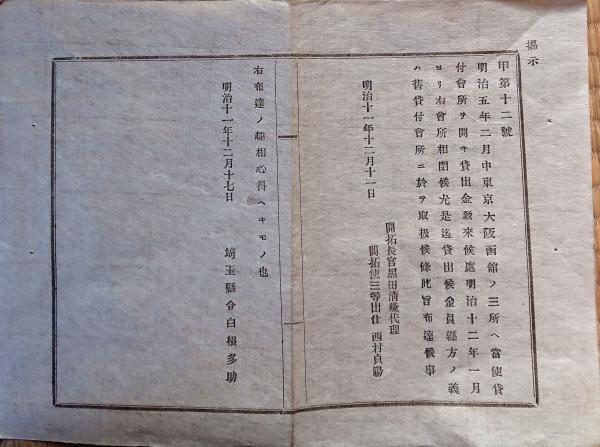 揭示
甲第十二號
明治五年二月中東京大阪函館ノ三所ヘ當使貸
付會所ヲ開キ貸出金致來候處明治十二年一月
ヨリ右會所相閉候尤是迄貸出候金員經方ノ義
ハ舊貸付會所ニ於テ取扱候條此旨布達候事
明治十一年十二月十一日
開拓長官黑田淸隆代理
開拓使三等出仕 西村貞陽
右布達ノ趣相心得ヘキモノ也
明治十一年十二月十七日
埼玉縣令白根多助